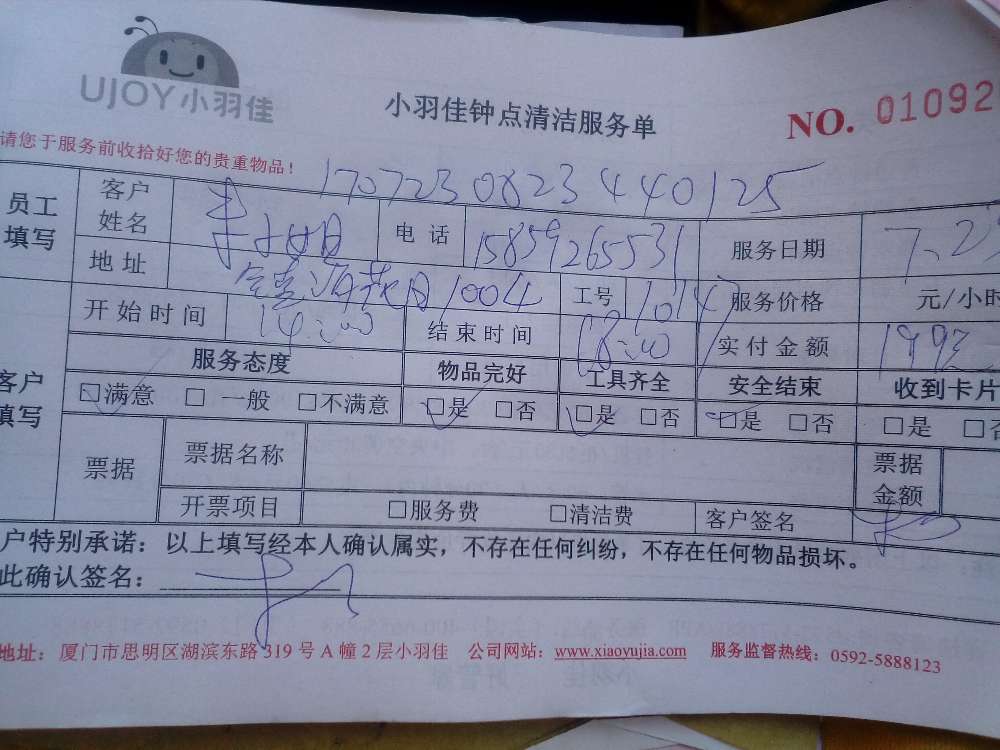 UJOY小羽佳
小羽佳钟点清洁服务单
NO. 01092
请您于服务前收拾好您的贵重物品！
1707230823440125
员工填写 客户姓名 小姐 电话 15859265531 服务日期 7.23
地址 1004 工号 1014 服务价格 元/小时
开始时间 14:00 结束时间 18:00 实付金额
客户填写 服务态度 物品完好 工具齐全 安全结束 收到卡片
☑满意 □一般 □不满意 ☑是 □否 ☑是 □否 ☑是 □否 □是 □否
票据 票据名称 票据金额
开票项目 □服务费 □清洁费 客户签名
户特别承诺：以上填写经本人确认属实，不存在任何纠纷，不存在任何物品损坏。
此确认签名：
地址：厦门市思明区湖滨东路319号A幢2层小羽佳 公司网站：www.xiaoyujia.com 服务监督热线：0592-5888123